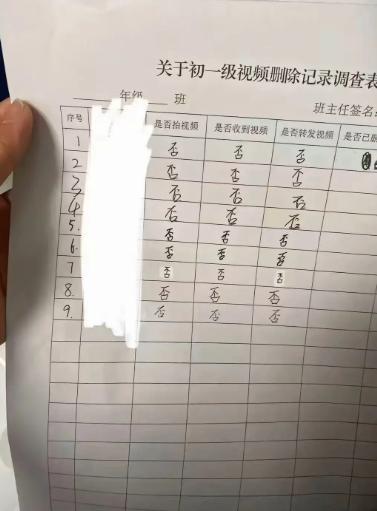 关于初一级视频删除记录调查表
年级 班
班主任签名:
序号 是否拍视频 是否收到视频 是否转发视频 是否已删
1 否 否 否
2 否 否 否
3 否 否 否
4 否 否 否
5. 否 否 否
6. 否 否 否
7 否 否 否
8. 否 否 否
9. 否 否 否